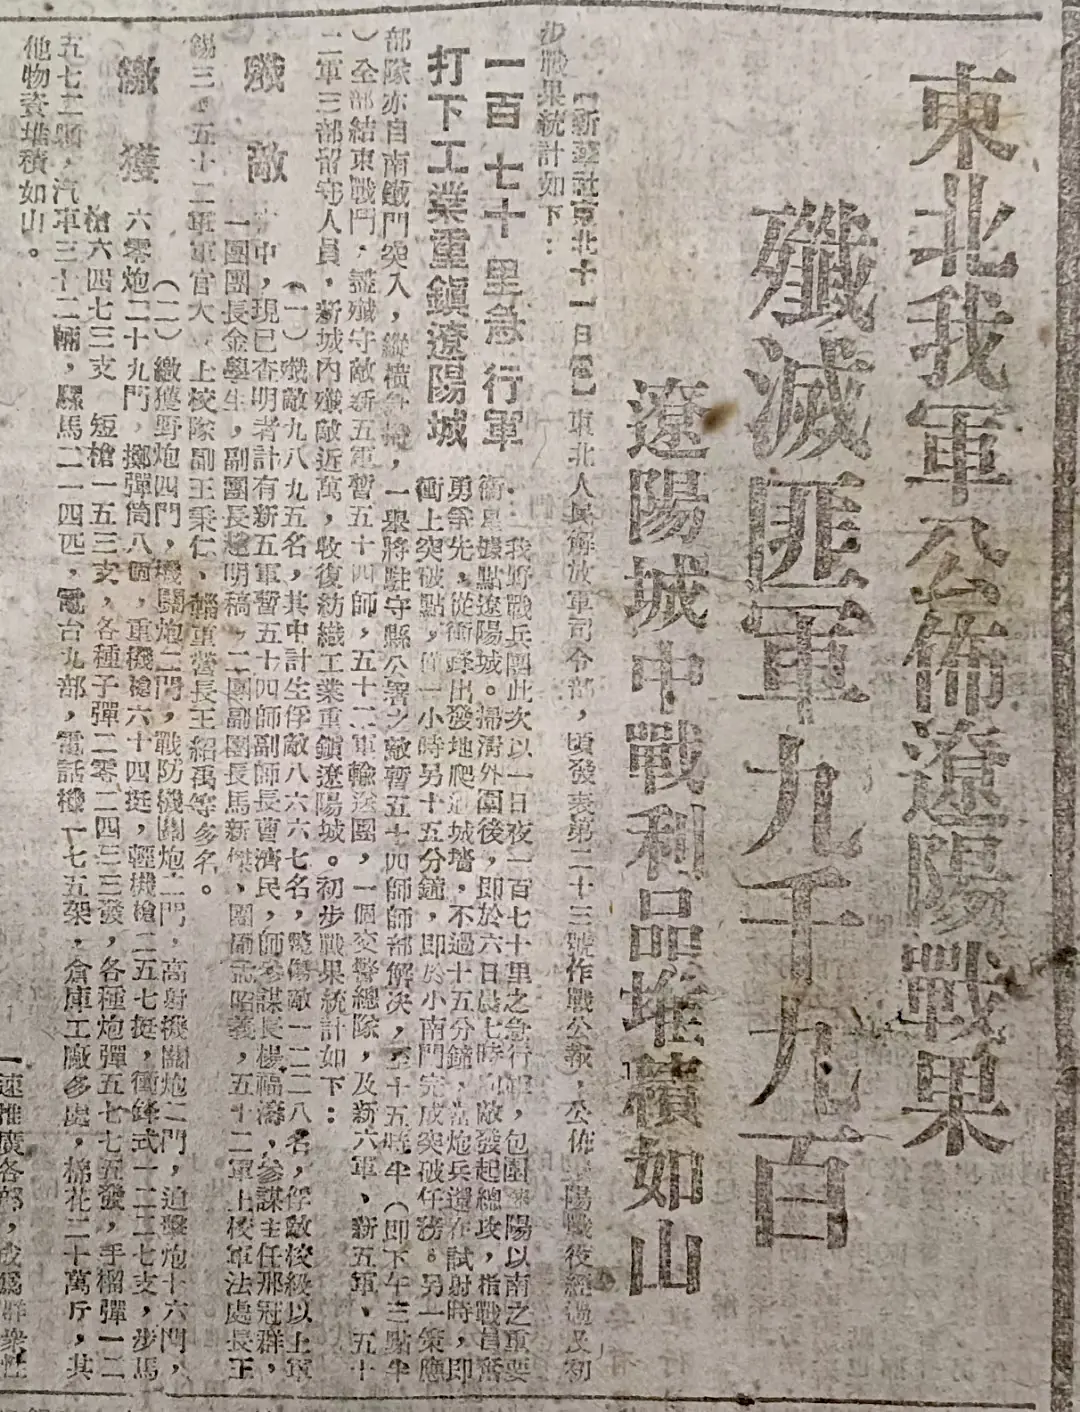 東北我軍公佈遼陽戰果
殲滅匪軍九千九百
遼陽城中戰利品堆積如山
【新華社東北十一日電】東北人民解放軍司令部,頃發表第二十三號作戰公報,公佈陽戰役經過及初
步戰果統計如下:
一百七十里急行軍
打下工業重鎮遼陽城
我野戰兵團此次以一日夜一百七十里之急行軍,包圍陽以南之重要
衛星據點遼陽城。掃清外圍後,即於六日晨七時向敵發起總攻,指戰員奮
勇爭先,從衝鋒出發地爬過城牆,不過十五分鐘,當炮兵還在試射時,即
衝上突破點,僅一小時另十五分鐘,即於小南門完成突破任務。另一策應
部隊亦自南鐵門突入,縱橫,一舉將駐守縣公署之敵暫五十四師師部解決,至十五時半(即下午三點半
)全部結束戰鬥,盡殲守敵新五軍暫五十四師,五十二軍輸送團,一個交警總隊,及新六軍、新五軍、五十
二軍三部留守人員,新城內殲敵近萬,收復紡織工業重鎮遼陽城。初步戰果統計如下:
殲敵
(一)殲敵九八九五名,其中計生俘敵八六六七名,斃傷敵一二二八名,俘敵校級以上軍
中,現已查明者計有新五軍暫五十四師副師長曹濟民,師參謀長楊福濤,參謀主任那冠群,
一團團長金學生,副團長趙明稿,二團副團長馬新傑、團昭義,五十二軍上校軍法處長王
錫三,五十二軍軍官大上校隊副王秉仁、輜重營長王紹禹等多名。
繳獲
(二)繳獲野炮四門,機關炮二門,戰防機關炮二門,高射機關炮二門,迫擊炮十六門,
六零炮二十九門,擲彈筒八個,重機槍六十四挺,輕機槍二五七挺,衝鋒式一二二七支,步馬
槍六四七三支 短槍一五三支,各種子彈二零二四三三發,各種炮彈五七七五發,手榴彈一二
五七二顆,汽車三十二輛,騾馬二一四匹,電台九部,電話機一七五架,倉庫工廠多處,棉花二十萬斤,其
他物資堆積如山。
速推廣各部,成為群衆性